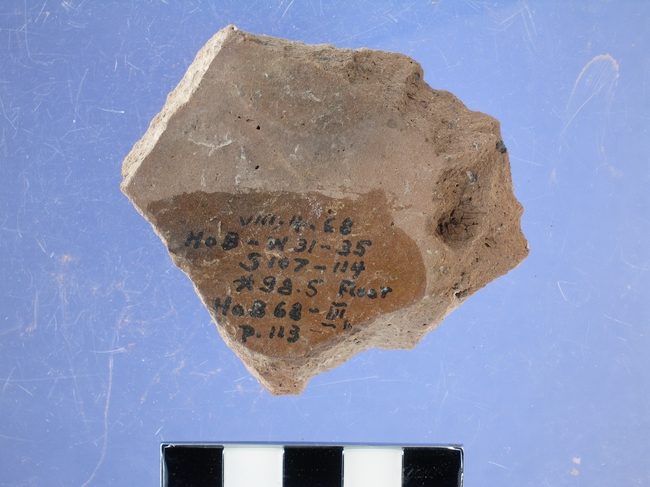 VIII.14.68
HoB - W31-35
S107-114
*98.5 Floor
HoB68-III
P.113